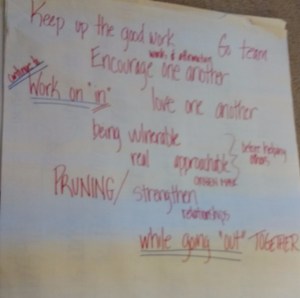 Keep up the good work
Go team
words of affirmation
Encourage one another
continue to
Work on "in"
love one another
being vulnerable
real approachable
before helping others
common man
PRUNING/ strengthen
relationships
while going "out" TOGETHER